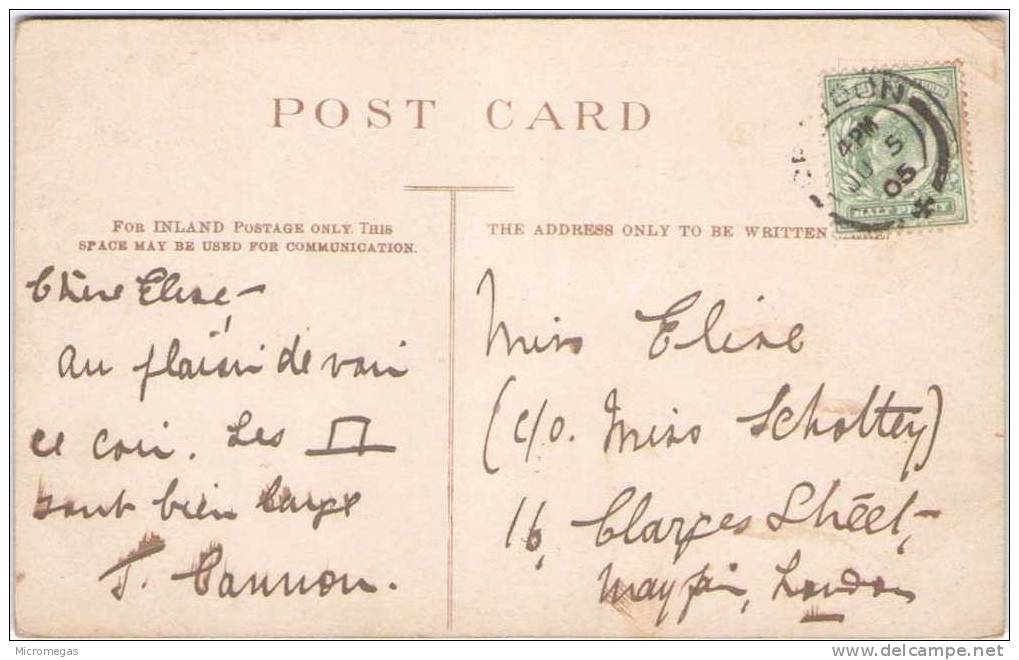 POST CARD
4 PM
JU 5
05
FOR INLAND POSTAGE ONLY. THIS
SPACE MAY BE USED FOR COMMUNICATION.
THE ADDRESS ONLY TO BE WRITTEN HERE.
Chère Elise,
au plaisir de voir
ce coir. Les
sont bien large
T. Cannon.
Miss Elise
(c/o. Miss Scholtey)
16, Clarges Street,
Mayfair, London
Micromegas
delcampe.net